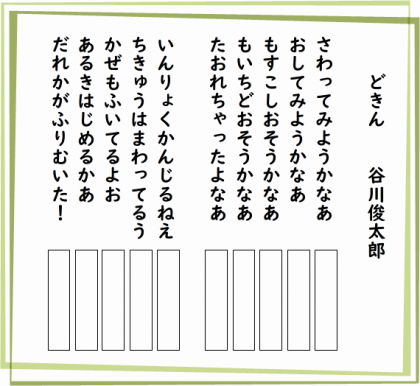 どきん 谷川俊太郎
さわってみようかなあ
おしてみようかなあ
もすこしおそうかなあ
もいちどおそうかなあ
たおれちゃったよなあ
いんりょくかんじるねえ
ちきゅうはまわってるう
かぜもふいてるよお
あるきはじめるかあ
だれかがふりむいた！